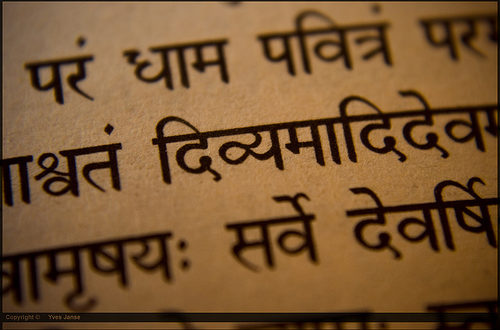 परं धाम पवित्रं पर
ाश्वतं दिव्यमादिदेवम
वामृषयः सर्वे देवर्षि
Copyright © Yves Janse